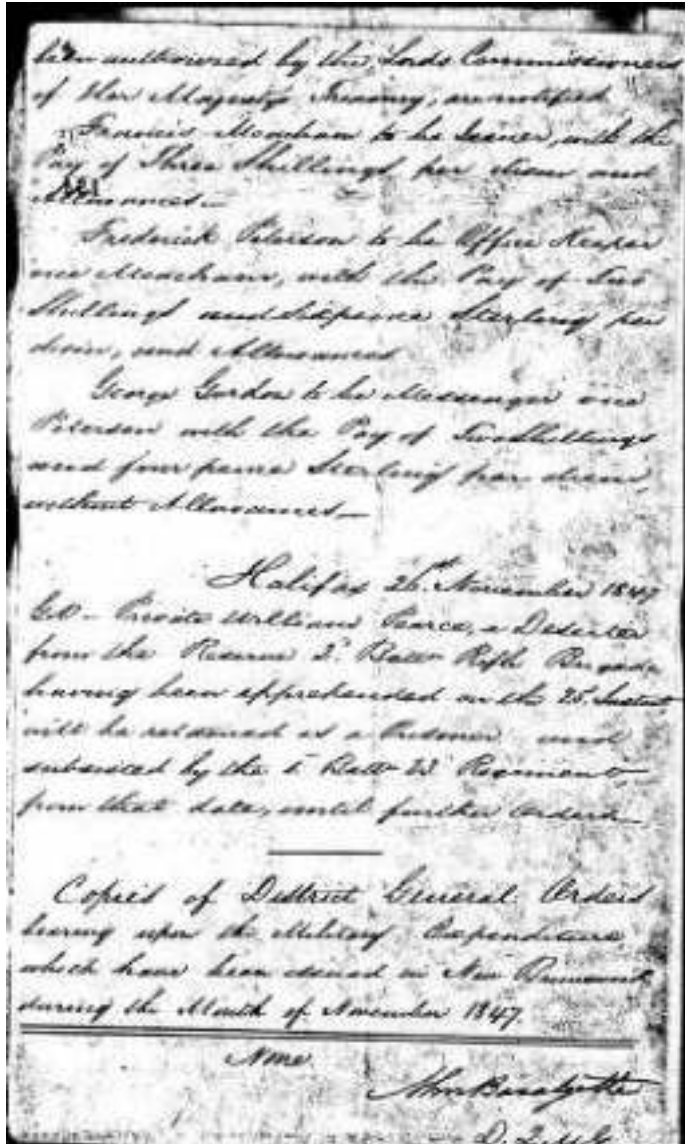 been authorized by the Lords Commissioners
of Her Majesty's Treasury, are notified
Francis Meacham to be Issuer, with the
Pay of Three Shillings per diem and
Allowances—
Frederick Peterson to be Office Keeper
vice Meacham, with the Pay of Two
Shillings and Sixpence Sterling per
diem, and Allowances
George Gordon to be Messenger vice
Peterson with the Pay of Two Shillings
and four pence Sterling per diem,
without Allowances—
Halifax 26th November 1847
G.O— Private William Pearce, a Deserter
from the Reserve 2d Battn Rifle Brigade
having been apprehended on the 25th Instant
will be retained as a Prisoner and
subsisted by the 1st Battn 23d Regiment,
from that date, until further Orders—
Copies of District General Orders
bearing upon the Military Expenditure
which have been issued in New Brunswick
during the Month of November 1847.
None